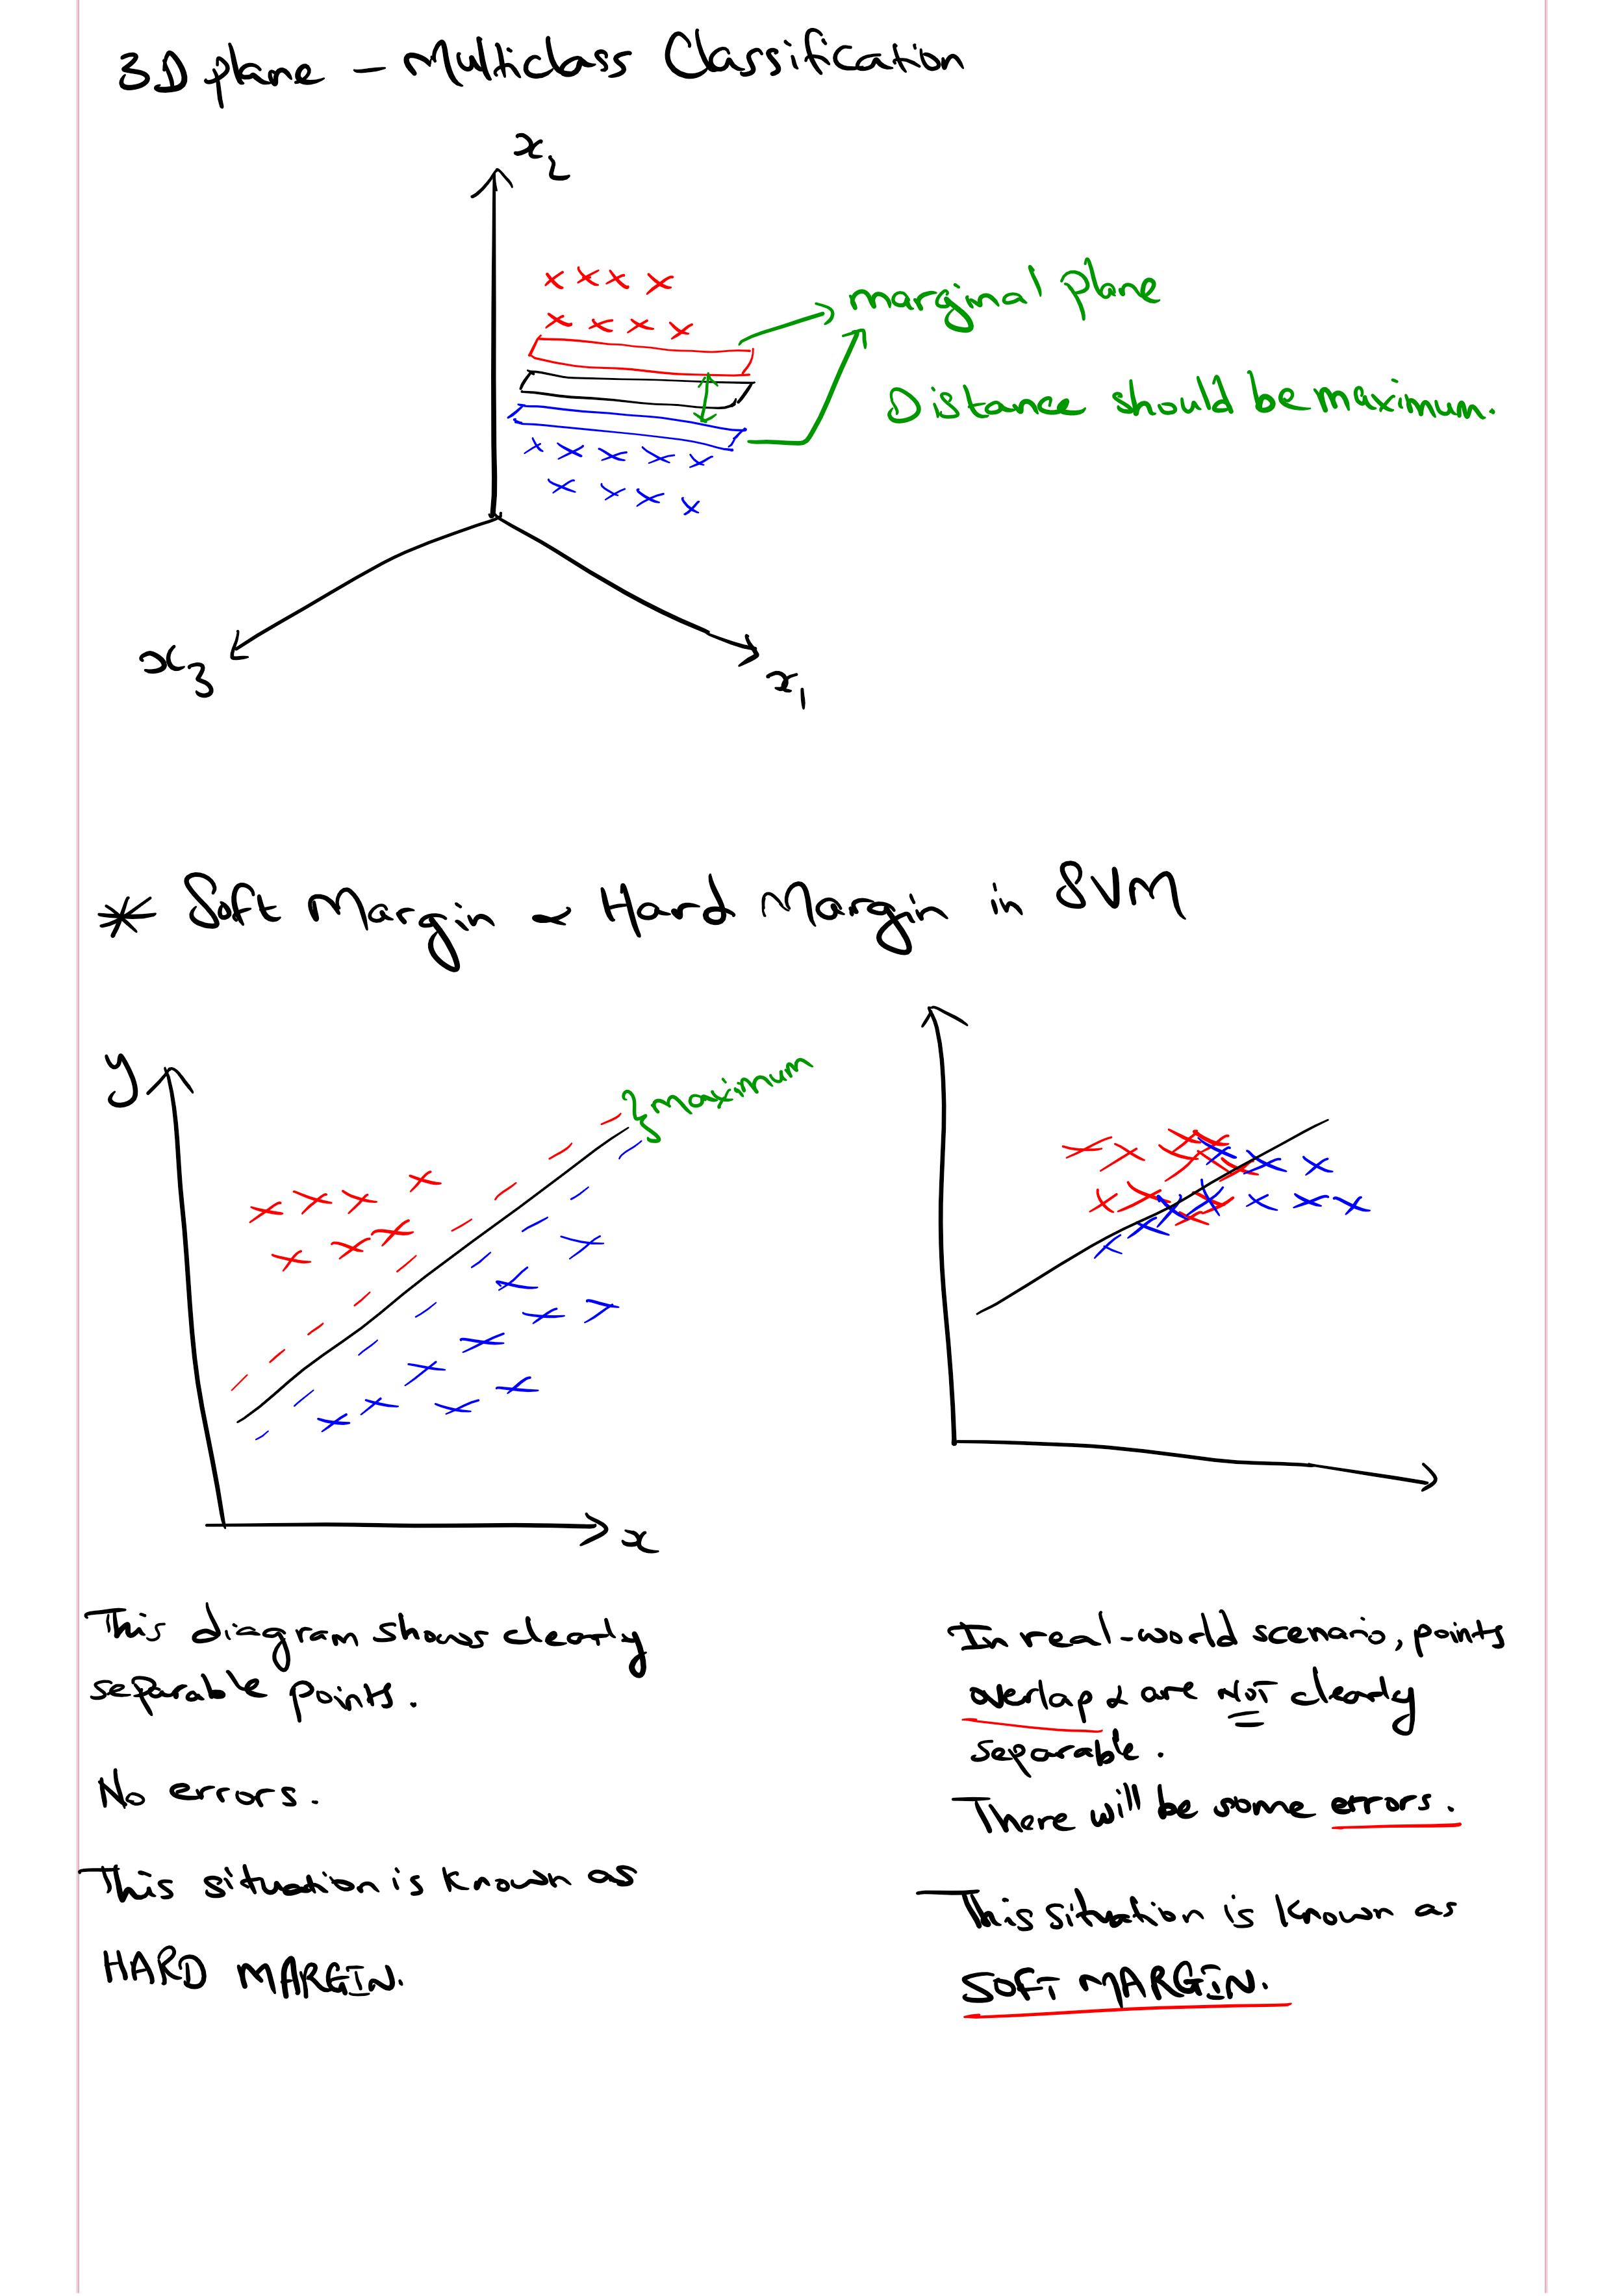 3D plane – Multiclass Classification
x2
marginal plane
Distance should be maximum.
x3
x1
* Soft Margin & Hard Margin in SVM
y
}maximum
x
This diagram shows clearly
separable points.
No errors.
This situation is known as
HARD MARGIN.
In real-world scenario, points
overlap & are NOT clearly
separable.
There will be some errors.
This situation is known as
SOFT MARGIN.